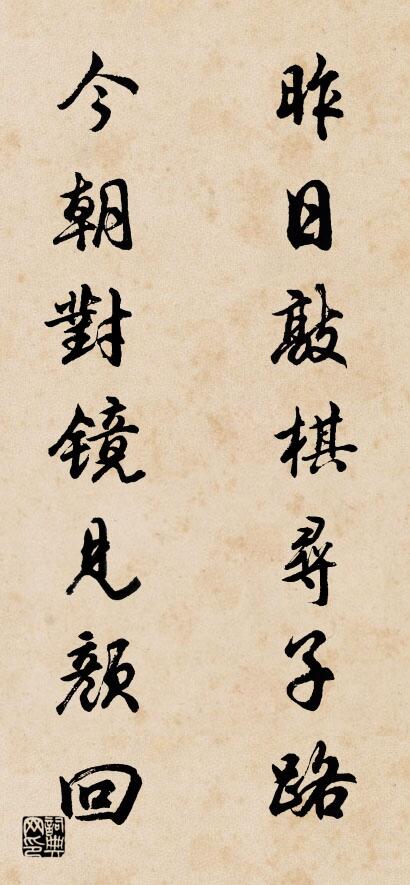 昨日敲棋尋子路
今朝對鏡見顏回
詞典网印